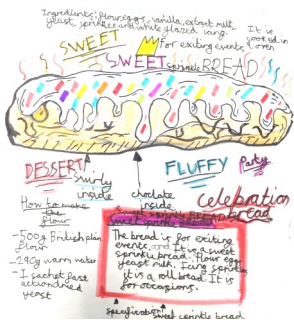 Ingredients: flour, eggs, vanilla, extract milk,
yeast, sprinkles and white glazed icing.
It is
cooked in
a oven
SWEET
For exiting events
SWEET sprinkle BREAD
DESSERT
FLUFFY
Party
swirly
inside
choclate
inside
celebration
bread
How to make
the
flour
-500g British plan
flour
-290g warm water
-1 sachet fast
action dried
yeast
sweet sprinkle BREAD
The bread is for exiting
events and It is a sweet
sprinkle bread. Flour egg
yeast milk. Icing sprinkles
it is a roll bread. It is
for occasions.
specification
sweet sprinkle bread